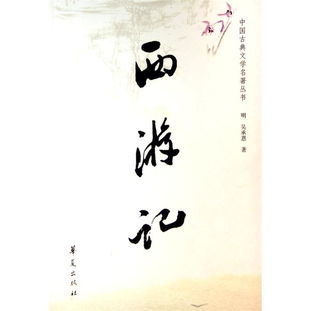 中国古典文学名著丛书
明 吴承恩 著
西游记
华夏出版社